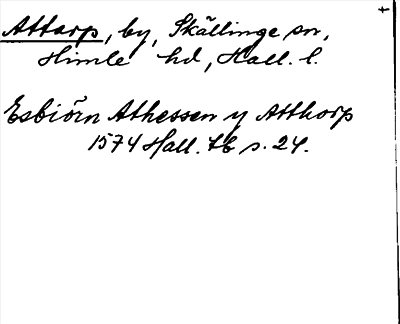 Attarp, by, Skällinge sn,
Himle hd, Hall. l.
Esbiörn Athessen y Atthorp
1574 Hall. tb s. 24.